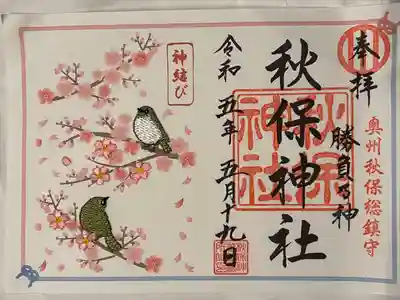 奉拝
奥州秋保総鎮守
勝負の神
秋保神社
秋保神社
令和五年五月十九日
神結び